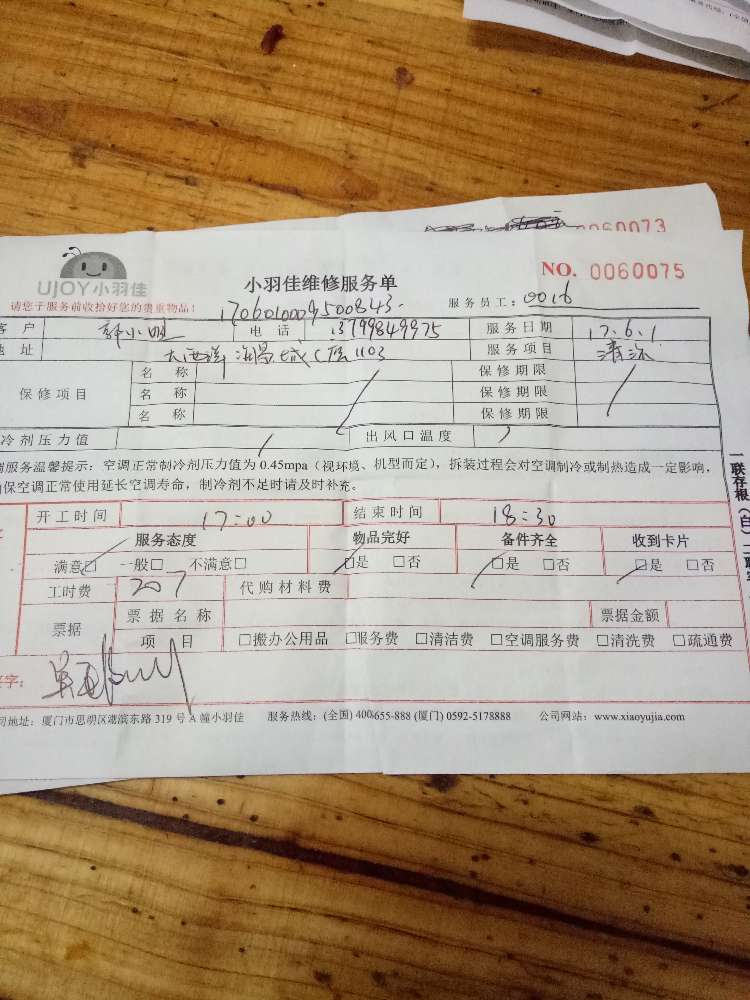 0060073
UJOY小羽佳
小羽佳维修服务单
NO. 0060075
请您于服务前收拾好您的贵重物品!
服务员工: 0016
客 户 电 话 13799849975 服务日期 17.6.1
地 址 1103 服务项目 清洗
保修项目 名 称 保修期限
名 称 保修期限
名 称 保修期限
冷剂压力值 出风口温度
服务温馨提示: 空调正常制冷剂压力值为 0.45mpa (视环境、机型而定), 拆装过程会对空调制冷或制热造成一定影响,
保空调正常使用延长空调寿命, 制冷剂不足时请及时补充。
开工时间 17:00 结束时间 18:30
服务态度 物品完好 备件齐全 收到卡片
满意□ 一般□ 不满意□ □是 □否 □是 □否 □是 □否
工时费 207 代购材料费
票据 票据名称 票据金额
项 目 □搬办公用品 □服务费 □清洁费 □空调服务费 □清洗费 □疏通费
字:
司地址: 厦门市思明区湖滨东路 319 号 A 幢小羽佳 服务热线: (全国) 400-655-888 (厦门) 0592-5178888 公司网站: www.xiaoyujia.com
一联存根(白)